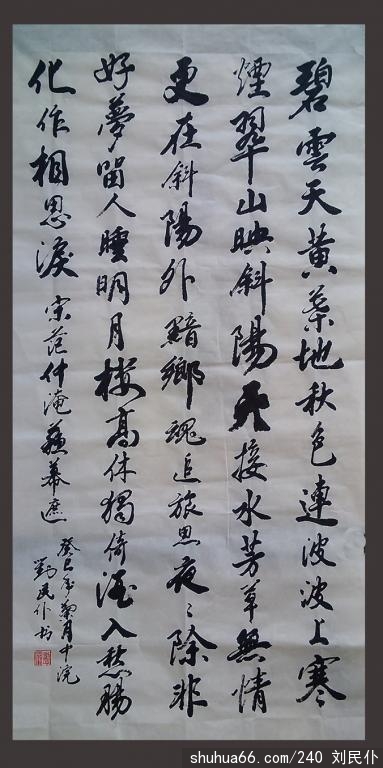 碧雲天黃葉地秋色連波波上寒
煙翠山映斜陽天接水芳草無情
更在斜陽外黯鄉魂追旅思夜〻除非
好夢留人睡明月樓高休獨倚酒入愁腸
化作相思淚
宋范仲淹蘇幕遮
癸巳年菊月中浣
劉民仆书
shuhua66.com/240 刘民仆